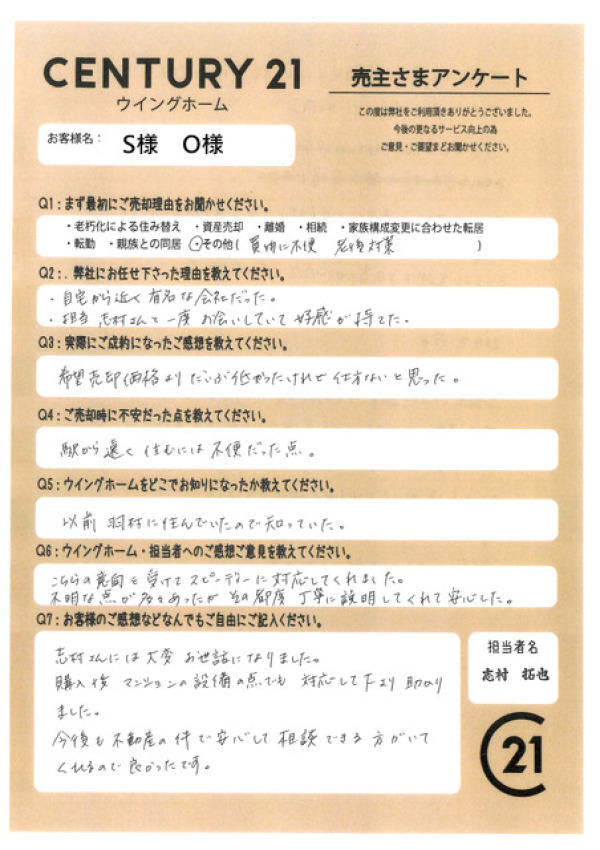 CENTURY 21
ウイングホーム
売主さまアンケート
この度は弊社をご利用頂きありがとうございました。
今後の更なるサービス向上の為
ご意見・ご要望をお聞かせください。
お客様名： S様 O様
Q1：まず最初にご売却理由をお聞かせください。
・老朽化による住み替え ・資産売却 ・離婚 ・相続 ・家族構成変更に合わせた転居
・転勤 ・親族との同居 ・その他( 買物に不便 老後対策 )
Q2：. 弊社にお任せ下さった理由を教えてください。
・自宅から近く有名な会社だった。
・担当 志村さんと一度お会いしていて好感が持てた。
Q3：実際にご成約になったご感想を教えてください。
希望売却価格よりだいぶ低かったけれど仕方ないと思った。
Q4：ご売却時に不安だった点を教えてください。
駅から遠く住むには不便だった点。
Q5：ウイングホームをどこでお知りになったか教えてください。
以前 羽村に住んでいたので知っていた。
Q6：ウイングホーム・担当者へのご感想ご意見を教えてください。
こちらの意向を受けてスピーディーに対応してくれました。
不明な点が多々あったがその都度丁寧に説明してくれて安心した。
Q7：お客様のご感想などなんでもご自由にご記入ください。
志村さんには大変お世話になりました。
購入後マンションの設備の点でも対応して下さり助かり
ました。
今後も不動産の件で安心して相談できる方がいて
くれるので良かったです。
担当者名
志村 拓也
21